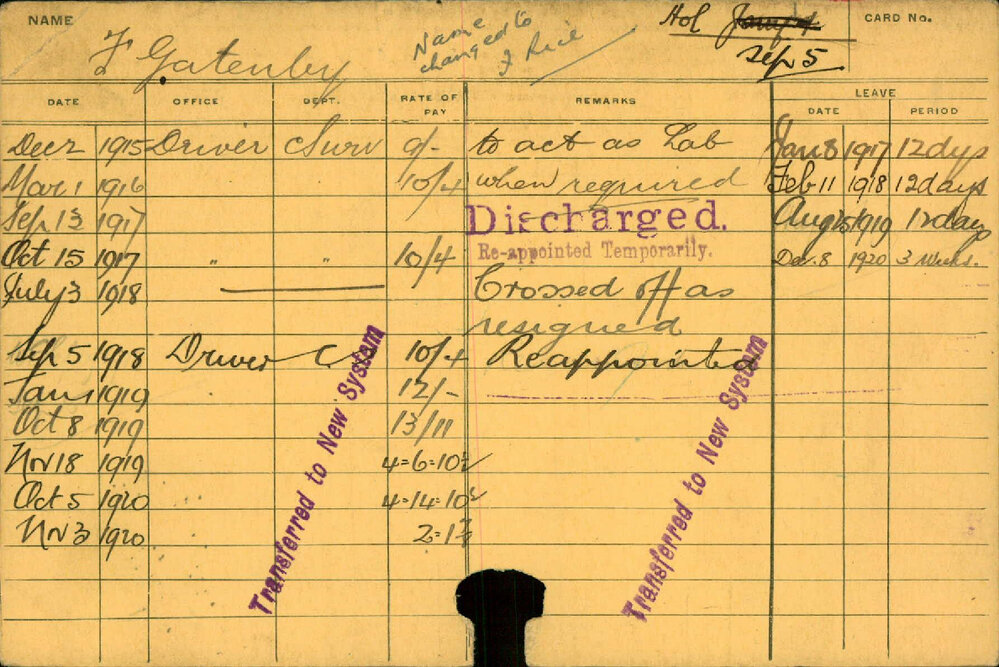 NAME
F Gatenby
Name
changed to
F Rice
Hol
Sep 5
CARD No.
DATE OFFICE DEPT. RATE OF PAY REMARKS LEAVE
DATE PERIOD
Dec 2 1915 Driver Surv 9/- to act as Lab Jan 8 1917 12 dys
Mar 1 1916 10/4 when required Feb 11 1918 12 days
Sep 13 1917 Discharged. Aug 15 1919 12 days
Re-appointed Temporarily.
Oct 15 1917 " " 10/4 Dec. 8 1920 3 weeks.
July 3 1918 Crossed off as
resigned
Sep 5 1918 Driver 10/4 Reappointed
Jan 1 1919 12/-
Oct 8 1919 13/11
Nov 18 1919 4=6=10½
Oct 5 1920 4=14=10½
Nov 3 1920
Transferred to New System
Transferred to New System